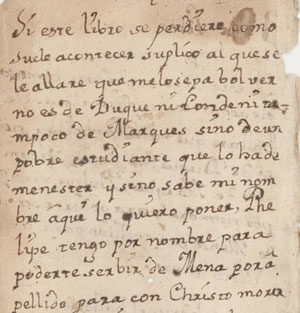 Si este libro se perdiere como
suele acontecer suplico al que se
le allare que melosepa bolver
no es de Duque ni Conde ni ta
mpoco de Marques sino de un
pobre estudiante que lo hade
menester y sino sabe mi nom
bre aqui lo quiero poner, Phe
lipe tengo por nombre para
poderte serbir de Mena por a
pellido para con Christo morir